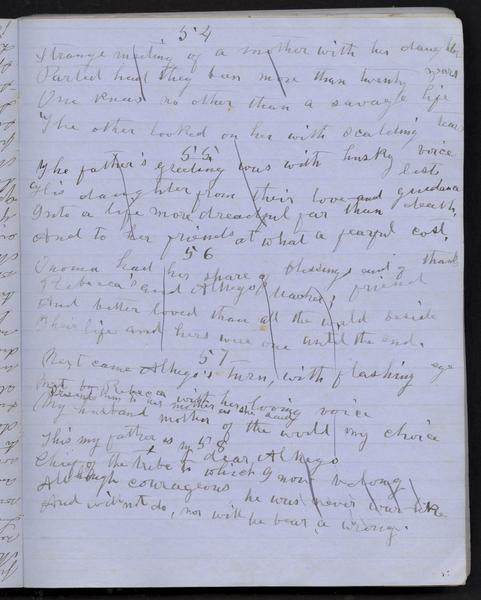 54
Strange meeting of a mother with her daughter
Parted had they been more than twenty years
One knew no other than a savage life
The other looked on her with scalding tears
55
The father's greeting was with husky voice
His daughter from their love and guidance lost
Into a life more dreadful far than death,
And to her friends at what a fearful cost.
56
Onoma had her share of blessings and of thank
Rebecca's and Alhego's teacher, friend
And better loved than all the world beside
Their life and hers were one until the end.
57
Next came Alhego's turn, with flashing eye
Met by Rebecca with her loving voice
Present him to her mother as she said
My husband mother of the world my choice
58
This my father is my dear Alhego
Chief of the tribe to which I now belong
Although courageous he was never war like
And will not do, nor will he bear a wrong.